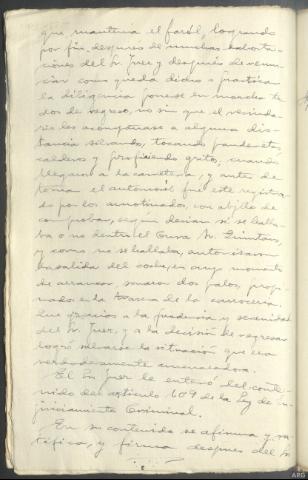 que mantenia el farol, logrando
por fin, despues de muchas exhorta-
ciones del Sr Juez y después de renun-
ciar como queda dicho a practicar
la diligencia ponerse en marcha to
dos de regreso, no sin que el vecinda-
rio les acompañase a alguna dis-
tancia silvando, tocando panderetas,
calderos y profiriendo gritos, cuando
llegaron a la carretera, y antes de
tomar el automovil fue este registra-
do por los amotinados, con objeto de
comprobar, según decian si se halla-
ba o no dentro el Cura Sr.
y como no se hallaba, autorizaron
la salida del coche, en cuyo momento
de arrancar sonaron dos palos, propi-
nados en la trasera de la carroceria.
Que gracias a la prudencia y serenidad
del Sr Juez, y a la decisión de regresar
logró salvarse la situacion que era
verdaderamente amenazadora.
El Sr Juez le enteró del conte-
nido del articulo 109 de la Ley de En-
juiciamiento Criminal.
En su contenido se afirma y ra-
tifica, y firma despues del Sr
ARG